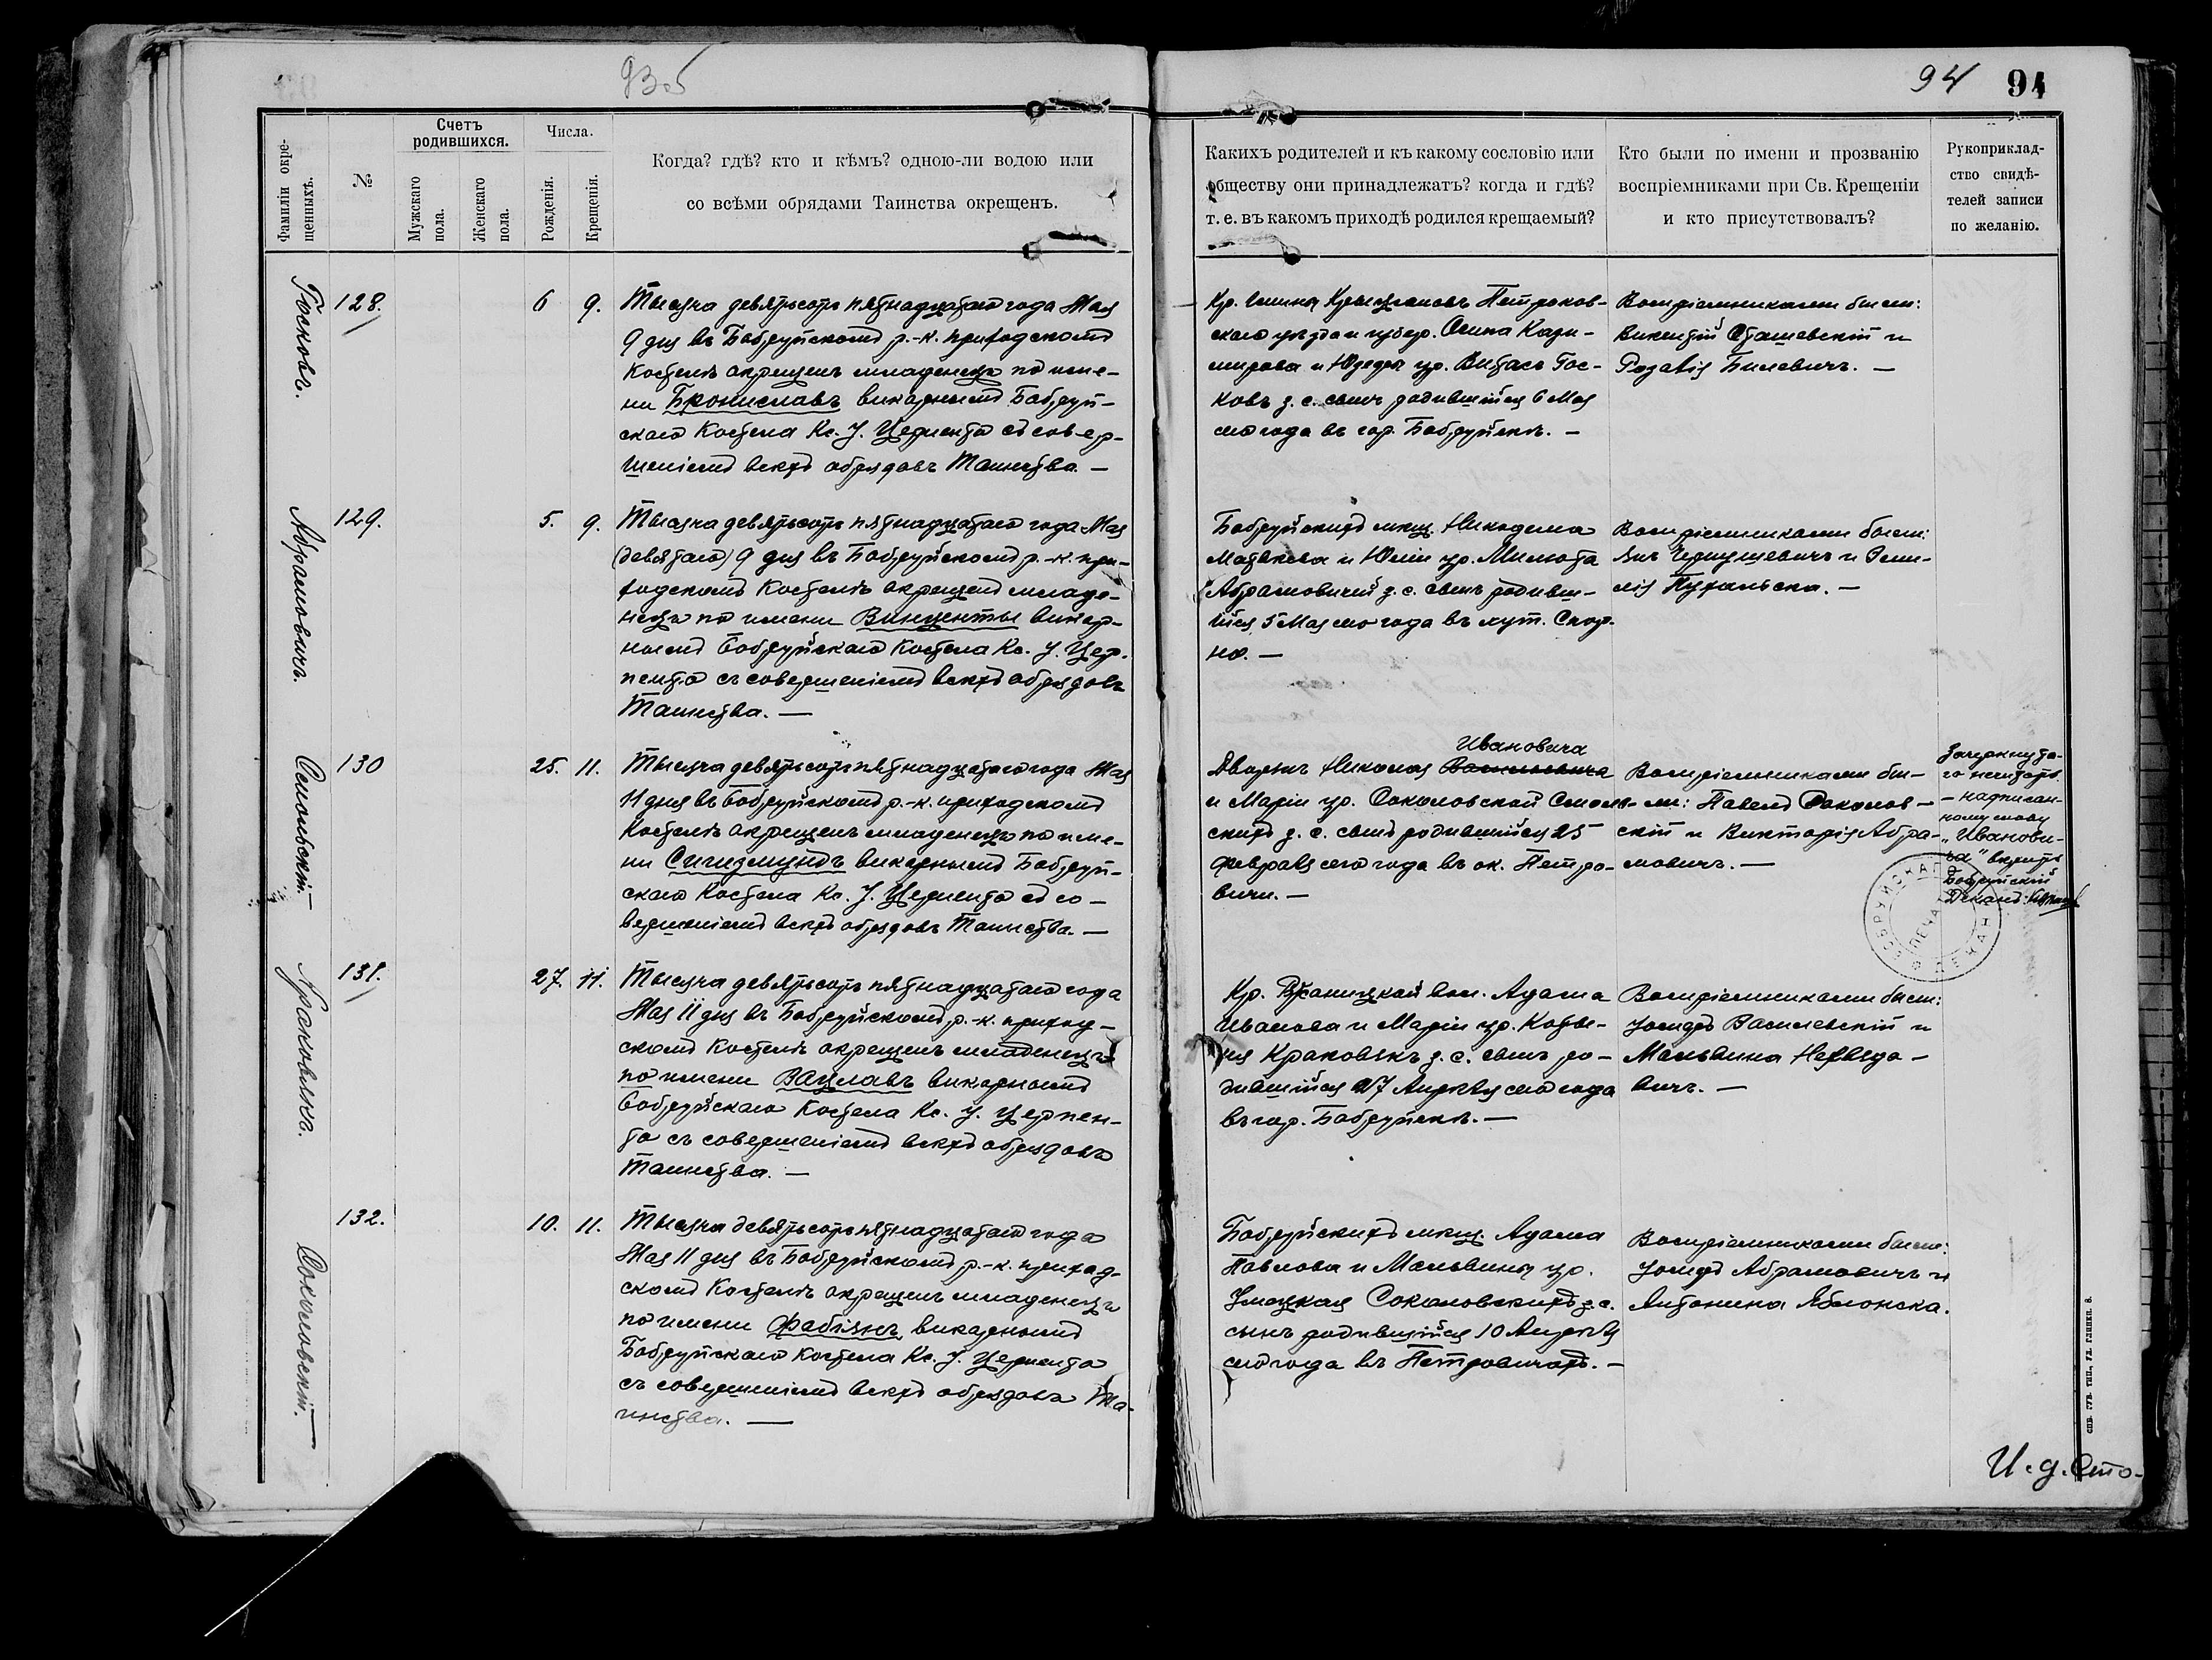 93об
94 94
Фамиліи окре-
щенныхъ.
№
Счетъ
родившихся.
Мужскаго
пола.
Женскаго
пола.
Числа.
Рожденія.
Крещенія.
Когда? гдѣ? кто и кѣмъ? одною-ли водою или
со всѣми обрядами Таинства окрещенъ.
Какихъ родителей и къ какому сословію или
обществу они принадлежатъ? когда и гдѣ?
т. е. въ какомъ приходѣ родился крещаемый?
Кто были по имени и прозванію
воспріемниками при Св. Крещеніи
и кто присутствовалъ?
Рукоприклад-
ство свидѣ-
телей записи
по желанію.
Госковъ.
128.
6 9.
Тысяча девятьсотъ пятнадцатаго года Мая
9 дня въ Бобруйскомъ р.-к. приходскомъ
Костелѣ окрещенъ младенецъ по име-
ни Брониславъ викарнымъ Бобруй-
скаго Костела Кс. У. Черпенто съ совер-
шеніемъ всѣхъ обрядовъ Таинства. —
Кр. гмины Петроков-
скаго уѣзда и губер. Осипа Кази-
мирова и Юзефы ур. Витасъ Гос-
ковъ з. с. сынъ родившійся 6 Мая
сего года въ гор. Бобруйскѣ. —
Воспріемниками были:
Викентій Сташевскій и
Розалія Билевичъ. —
Абрамовичъ.
129.
5. 9.
Тысяча девятьсотъ пятнадцатаго года Мая
(девятаго) 9 дня въ Бобруйскомъ р.-к. при-
ходскомъ Костелѣ окрещенъ младе-
нецъ по имени Винценты викар-
нымъ Бобруйскаго Костела Кс. У. Чер-
пенто съ совершеніемъ всѣхъ обрядовъ
Таинства. —
Бобруйскихъ мѣщ. Никодима
Матвѣева и Юліи ур. Милюта
Абрамовичей з. с. сынъ родивш-
ійся 5 Мая сего года въ хут. Скор-
но. —
Воспріемниками были:
Янъ и Эми-
лія Пухальска. —
Смольскій. —
130
25. 11.
Тысяча девятьсотъ пятнадцатаго года Мая
11 дня въ Бобруйскомъ р.-к. приходскомъ
Костелѣ окрещенъ младенецъ по име-
ни Сигизмундъ викарнымъ Бобруй-
скаго Костела Кс. У. Черпенто съ со-
вершеніемъ всѣхъ обрядовъ Таинства. —
Ивановича
Дворянъ Николая Васильевича
и Маріи ур. Соколовской Смоль-
скихъ з. с. сынъ родившійся 25
февраля сего года въ ок. Петро-
вичи. —
Воспріемниками бы-
ли: Павелъ Соколов-
скій и Викторія Абра-
мовичъ. —
Зачеркнута-
го не читать
- надписан-
ному слову
„Иванови-
ча" вѣрить
Бобруйскій
Деканъ:
БОБРУЙСКАГО ДЕКАНА
ПЕЧАТЬ
Краковякъ.
131.
27. 11.
Тысяча девятьсотъ пятнадцатаго года
Мая 11 дня въ Бобруйскомъ р.-к. приход-
скомъ Костелѣ окрещенъ младенецъ
по имени Вацлавъ викарнымъ
Бобруйскаго Костела Кс. У. Черпен-
то съ совершеніемъ всѣхъ обрядовъ
Таинства. —
Кр. вол. Адама
Иванова и Маріи ур.
Краковякъ з. с. сынъ ро-
дившійся 27 Апрѣля сего года
въ гор. Бобруйскѣ. —
Воспріемниками были:
Іосифъ Василевскій и
Мальвина Нехведо-
вичъ. —
Соколовскій. —
132.
10. 11.
Тысяча девятьсотъ пятнадцатаго года
Мая 11 дня въ Бобруйскомъ р.-к. приход-
скомъ Костелѣ окрещенъ младенецъ
по имени Фабіянъ викарнымъ
Бобруйскаго Костела Кс. У. Черпенто
съ совершеніемъ всѣхъ обрядовъ Та-
инства. —
Бобруйскихъ мѣщ. Адама
Павлова и Мальвины ур.
Соколовскихъ з. с.
сынъ родившійся 10 Апрѣля
сего года въ Петровичахъ. —
Воспріемниками были:
Іосифъ Абрамовичъ и
Антонина Яблонска.
СПБ. ГУБ. ТИП., УЛ. ГЛИНКИ. 8.
И. д. Сто-